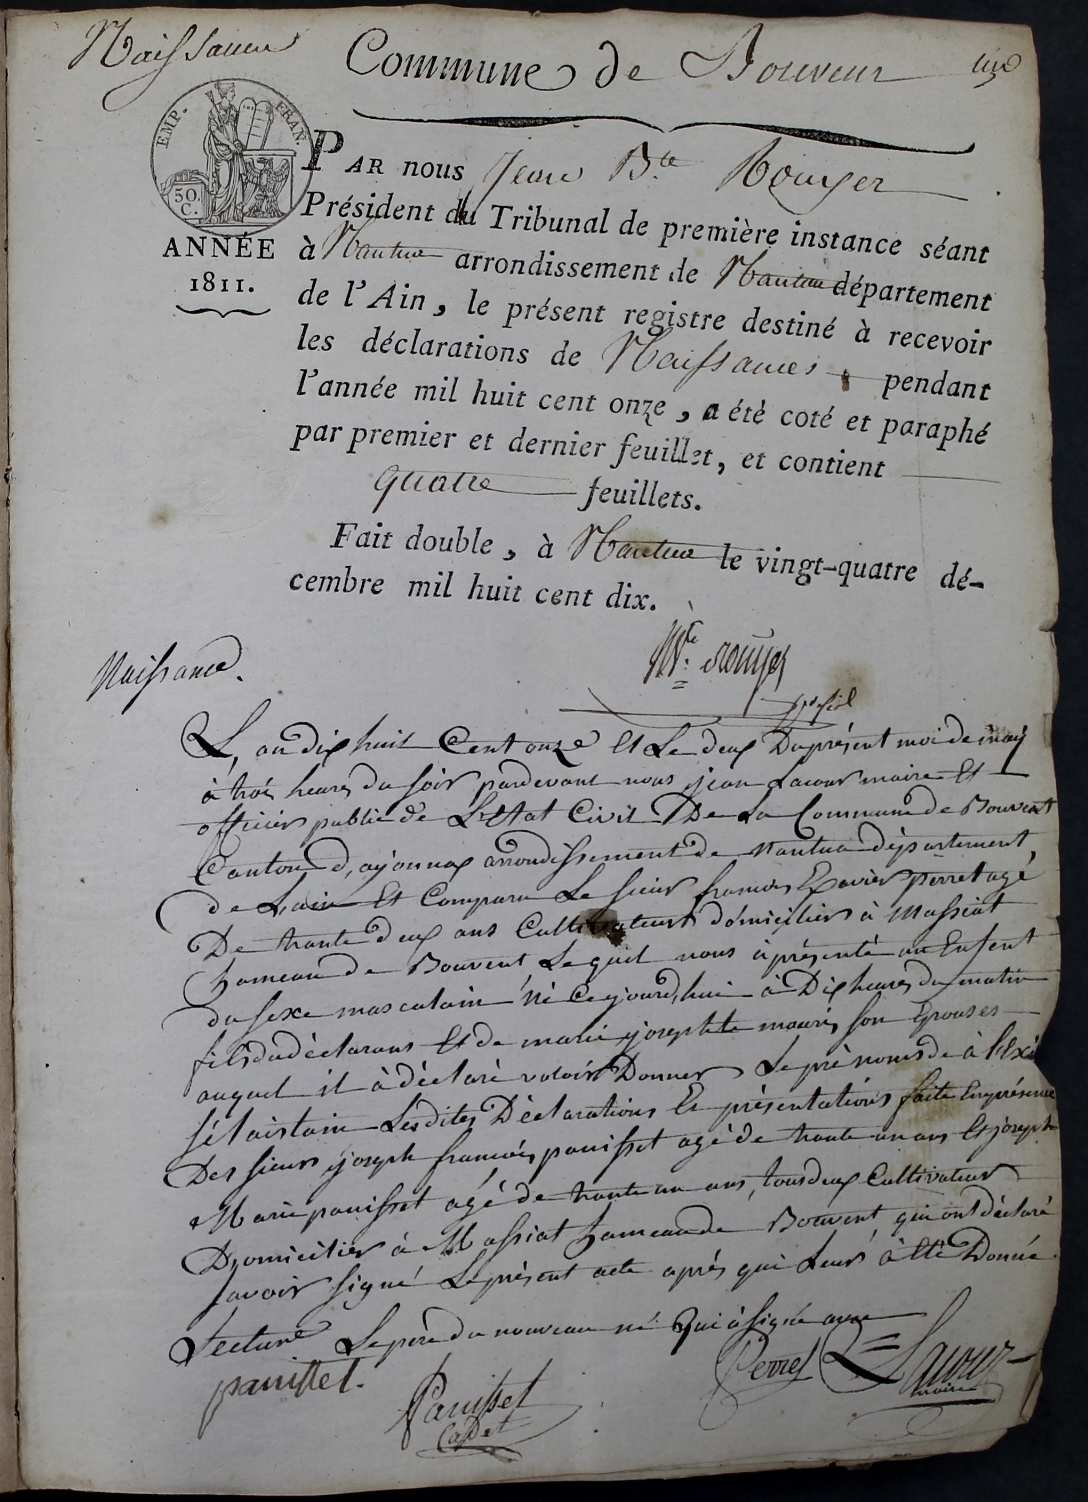 Naissance
Commune de Bouvent
EMP. FRAN.
50. C.
ANNÉE
1811.
PAR nous Jean Bte Rouyer
Président du Tribunal de première instance séant
à Nantua arrondissement de Nantua département
de l'Ain, le présent registre destiné à recevoir
les déclarations de Naissances pendant
l'année mil huit cent onze, a été coté et paraphé
par premier et dernier feuillet, et contient
quatre feuillets.
Fait double, à Nantua le vingt-quatre dé-
cembre mil huit cent dix.
Rouyer
Naissance.
L'an dix huit Cent onze Et Le deux Du présent moi de may
à troi heures du soir pardevant nous jean Lacour maire Et
officier public de L'Etat Civil De La Commune de Bouvent
Canton d'ayonnax arrondissement de nantua département
de L'ain Et Comparu Le sieur francois Exavier perret agé
De trante deux ans Cultivateur domicilier à Massiat
hameau de Bouvent Le quel nous à présenté un Enfent
du sexe masculain né Cejourd'hui à Dix heures du matin
fils du déclarans Et de marie josephte maurin son Epouses
auquel il à déclaré voloir Donner Le prénoms de à lExi
Sélaistain Lesdites Déclarations Et présentations faite En présence
Des sieurs joseph francois panisset agé de trante un ans Et joseph
Marie panisset agé de trante un ans, tous deux Cultivateur
Domicilier à Massiat hameau de Bouvent qui ont déclaré
savoir signé Le présent acte après qui Leur à été Donnée
Lecture Le père du nouveau né Qui à signée avec
panisset.
Panisset
Cadet
Perret
Lacour
maire